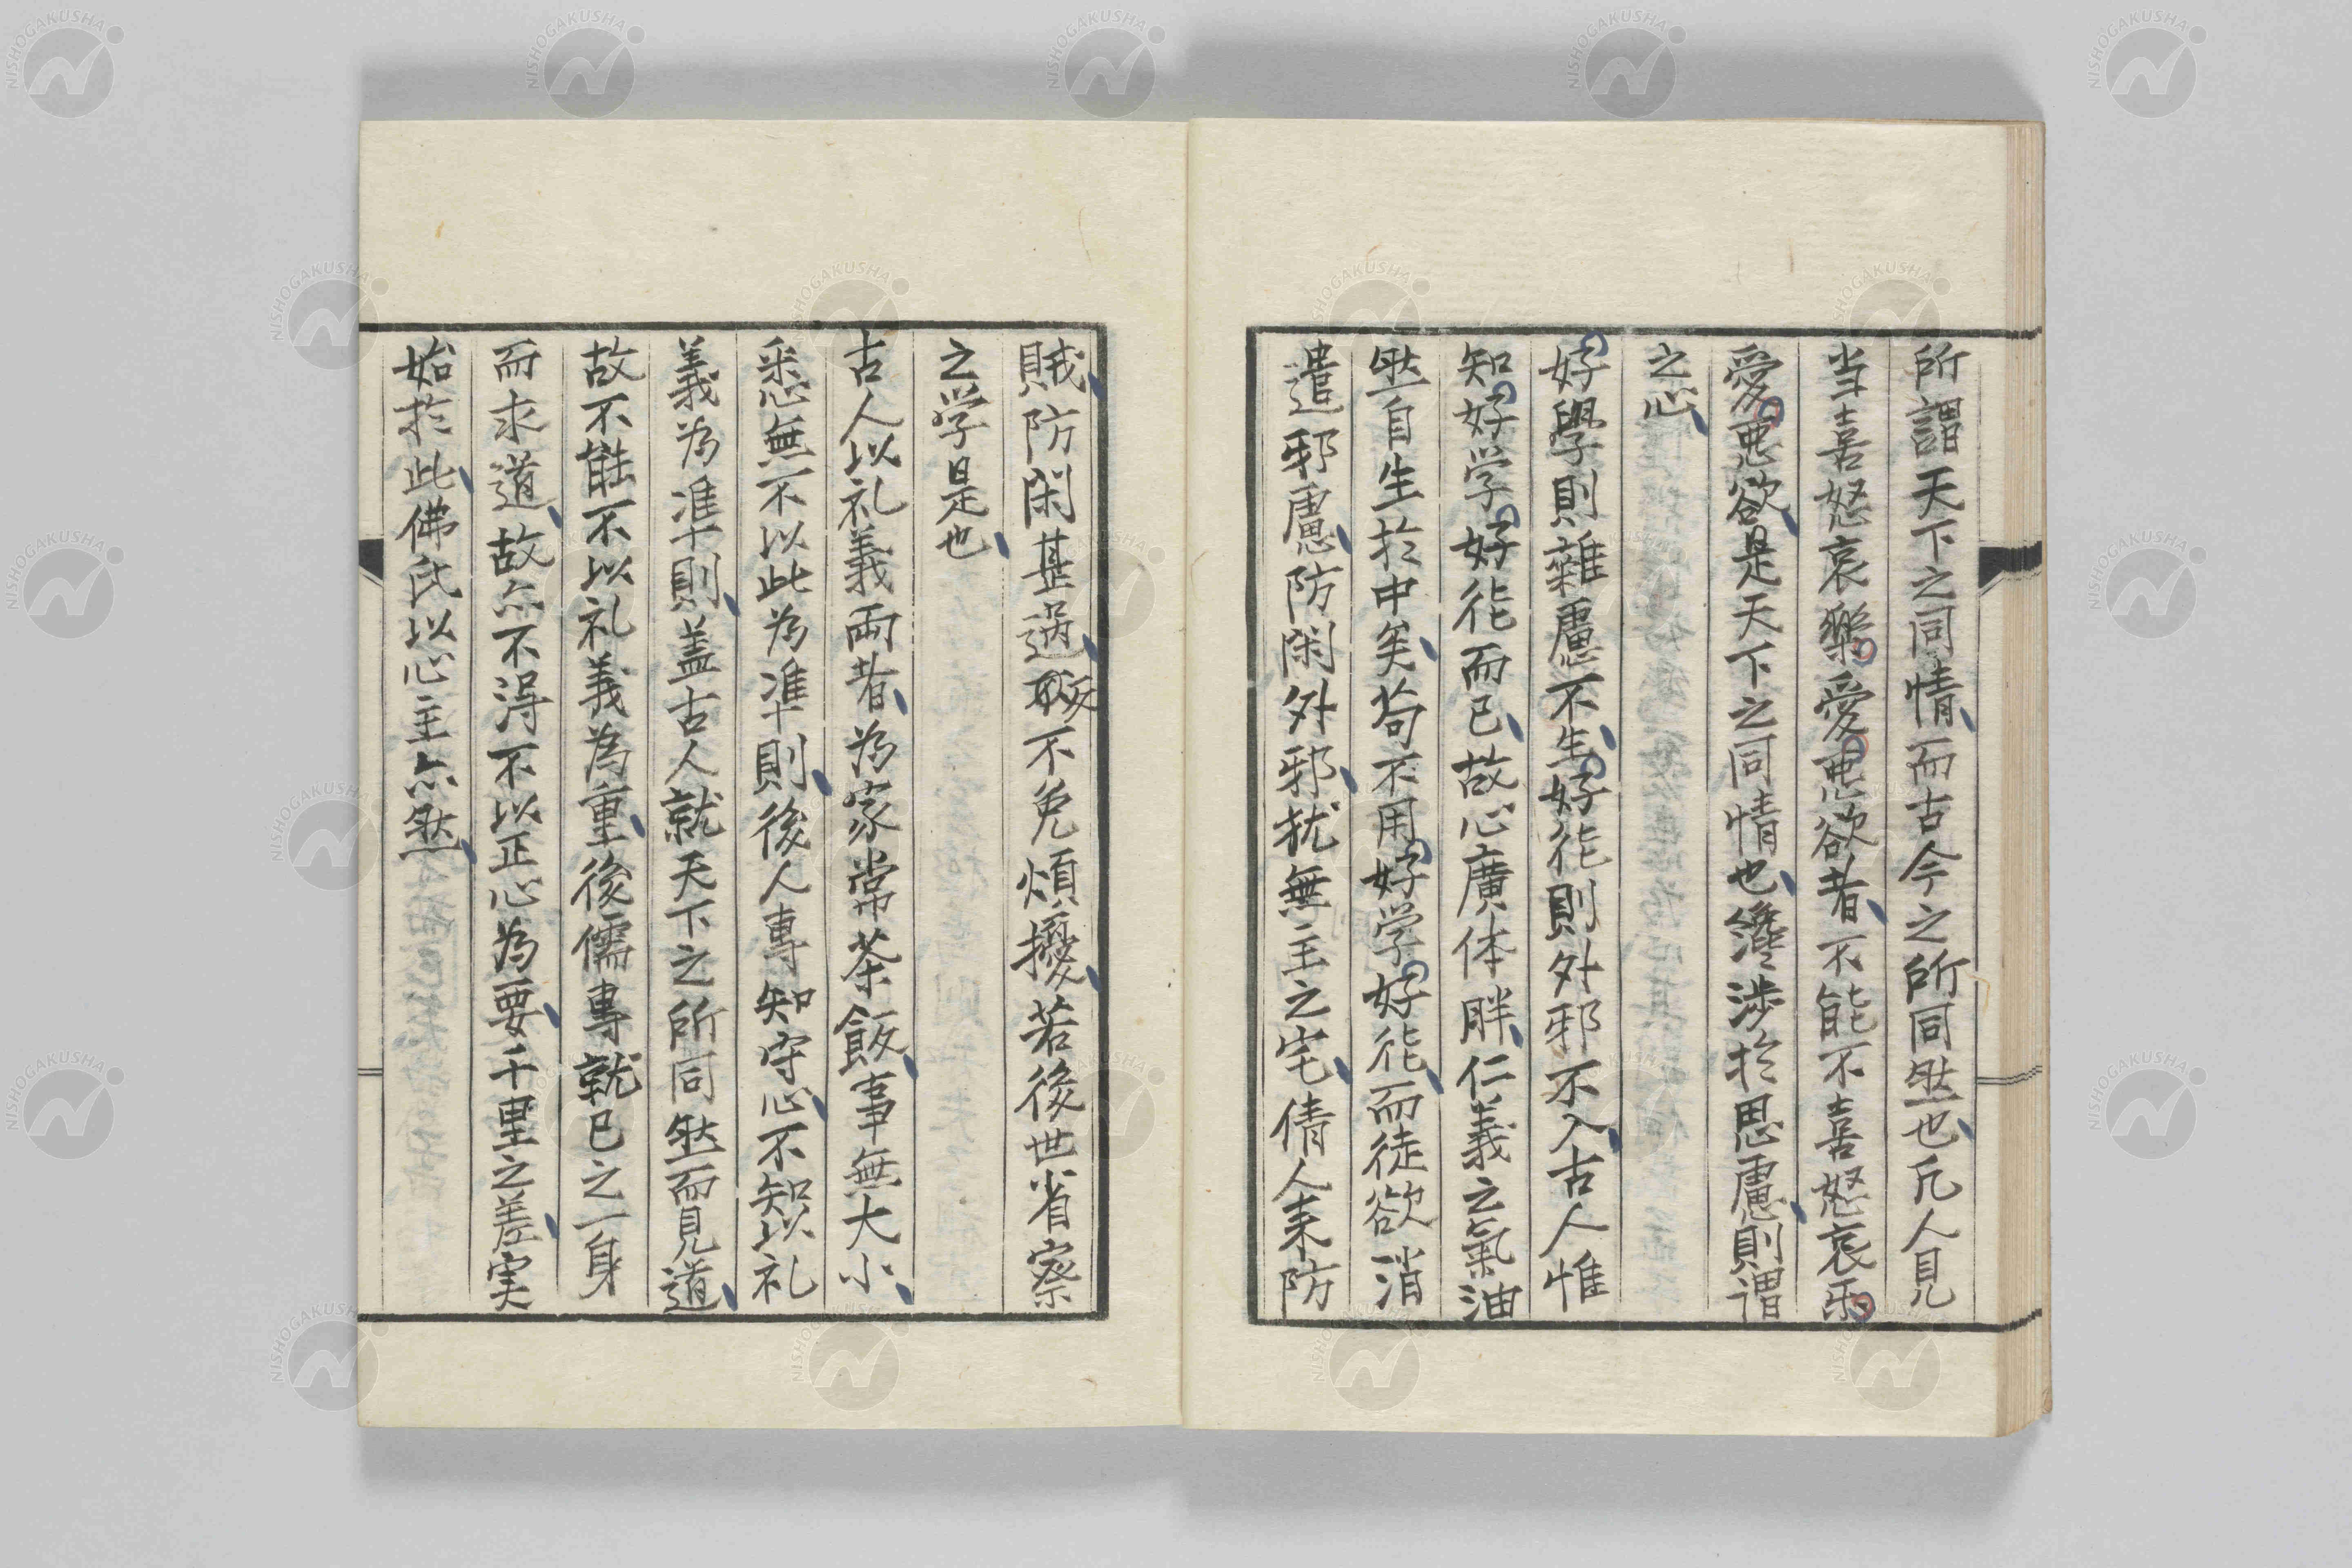 所謂天下之同情而古今之所同然也凡人見
当喜怒哀樂愛悪欲者不能不喜怒哀樂
愛悪欲是天下之同情也纔渉於思慮則謂
之心
好學則雜慮不生好徳則外邪不入古人惟
知好学好徳而已故心廣体胖仁義之氣油
然自生於中矣苟不用好学好徳而徒欲消
遣邪慮防閑外邪犹無主之宅倩人来防
賊防閑甚過却不免煩擾若後世省察
之学是也
古人以礼義両者為家常茶飯事無大小
悉無不以此為準則後人專知守心不知以礼
義為準則盖古人就天下之所同然而見道
故不能不以礼義為重後儒專就已之一身
而求道故亦不得不以正心為要千里之差実
始於此佛氏以心主亦然